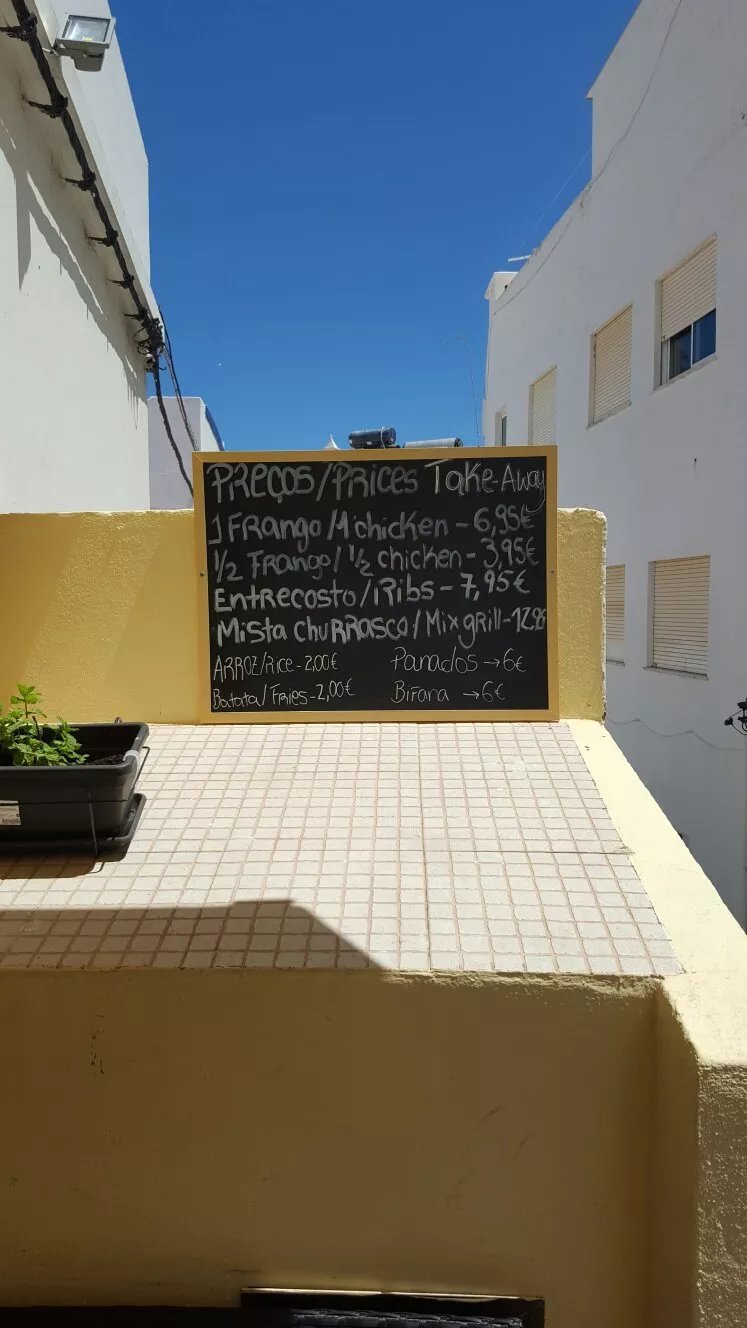 PREÇOS/PRICES TAKE-AWAY
1 FRANGO/1 chicken - 6,95€
1/2 FRANGO/ 1/2 chicken - 3,95€
ENTRECOSTO/RiBS - 7,95€
MISTA CHURRASCO/ Mix grill - 12,95
ARROZ/RICE - 2,00€
Batata/ FRIES - 2,00€
Panados → 6€
BIFANA → 6€